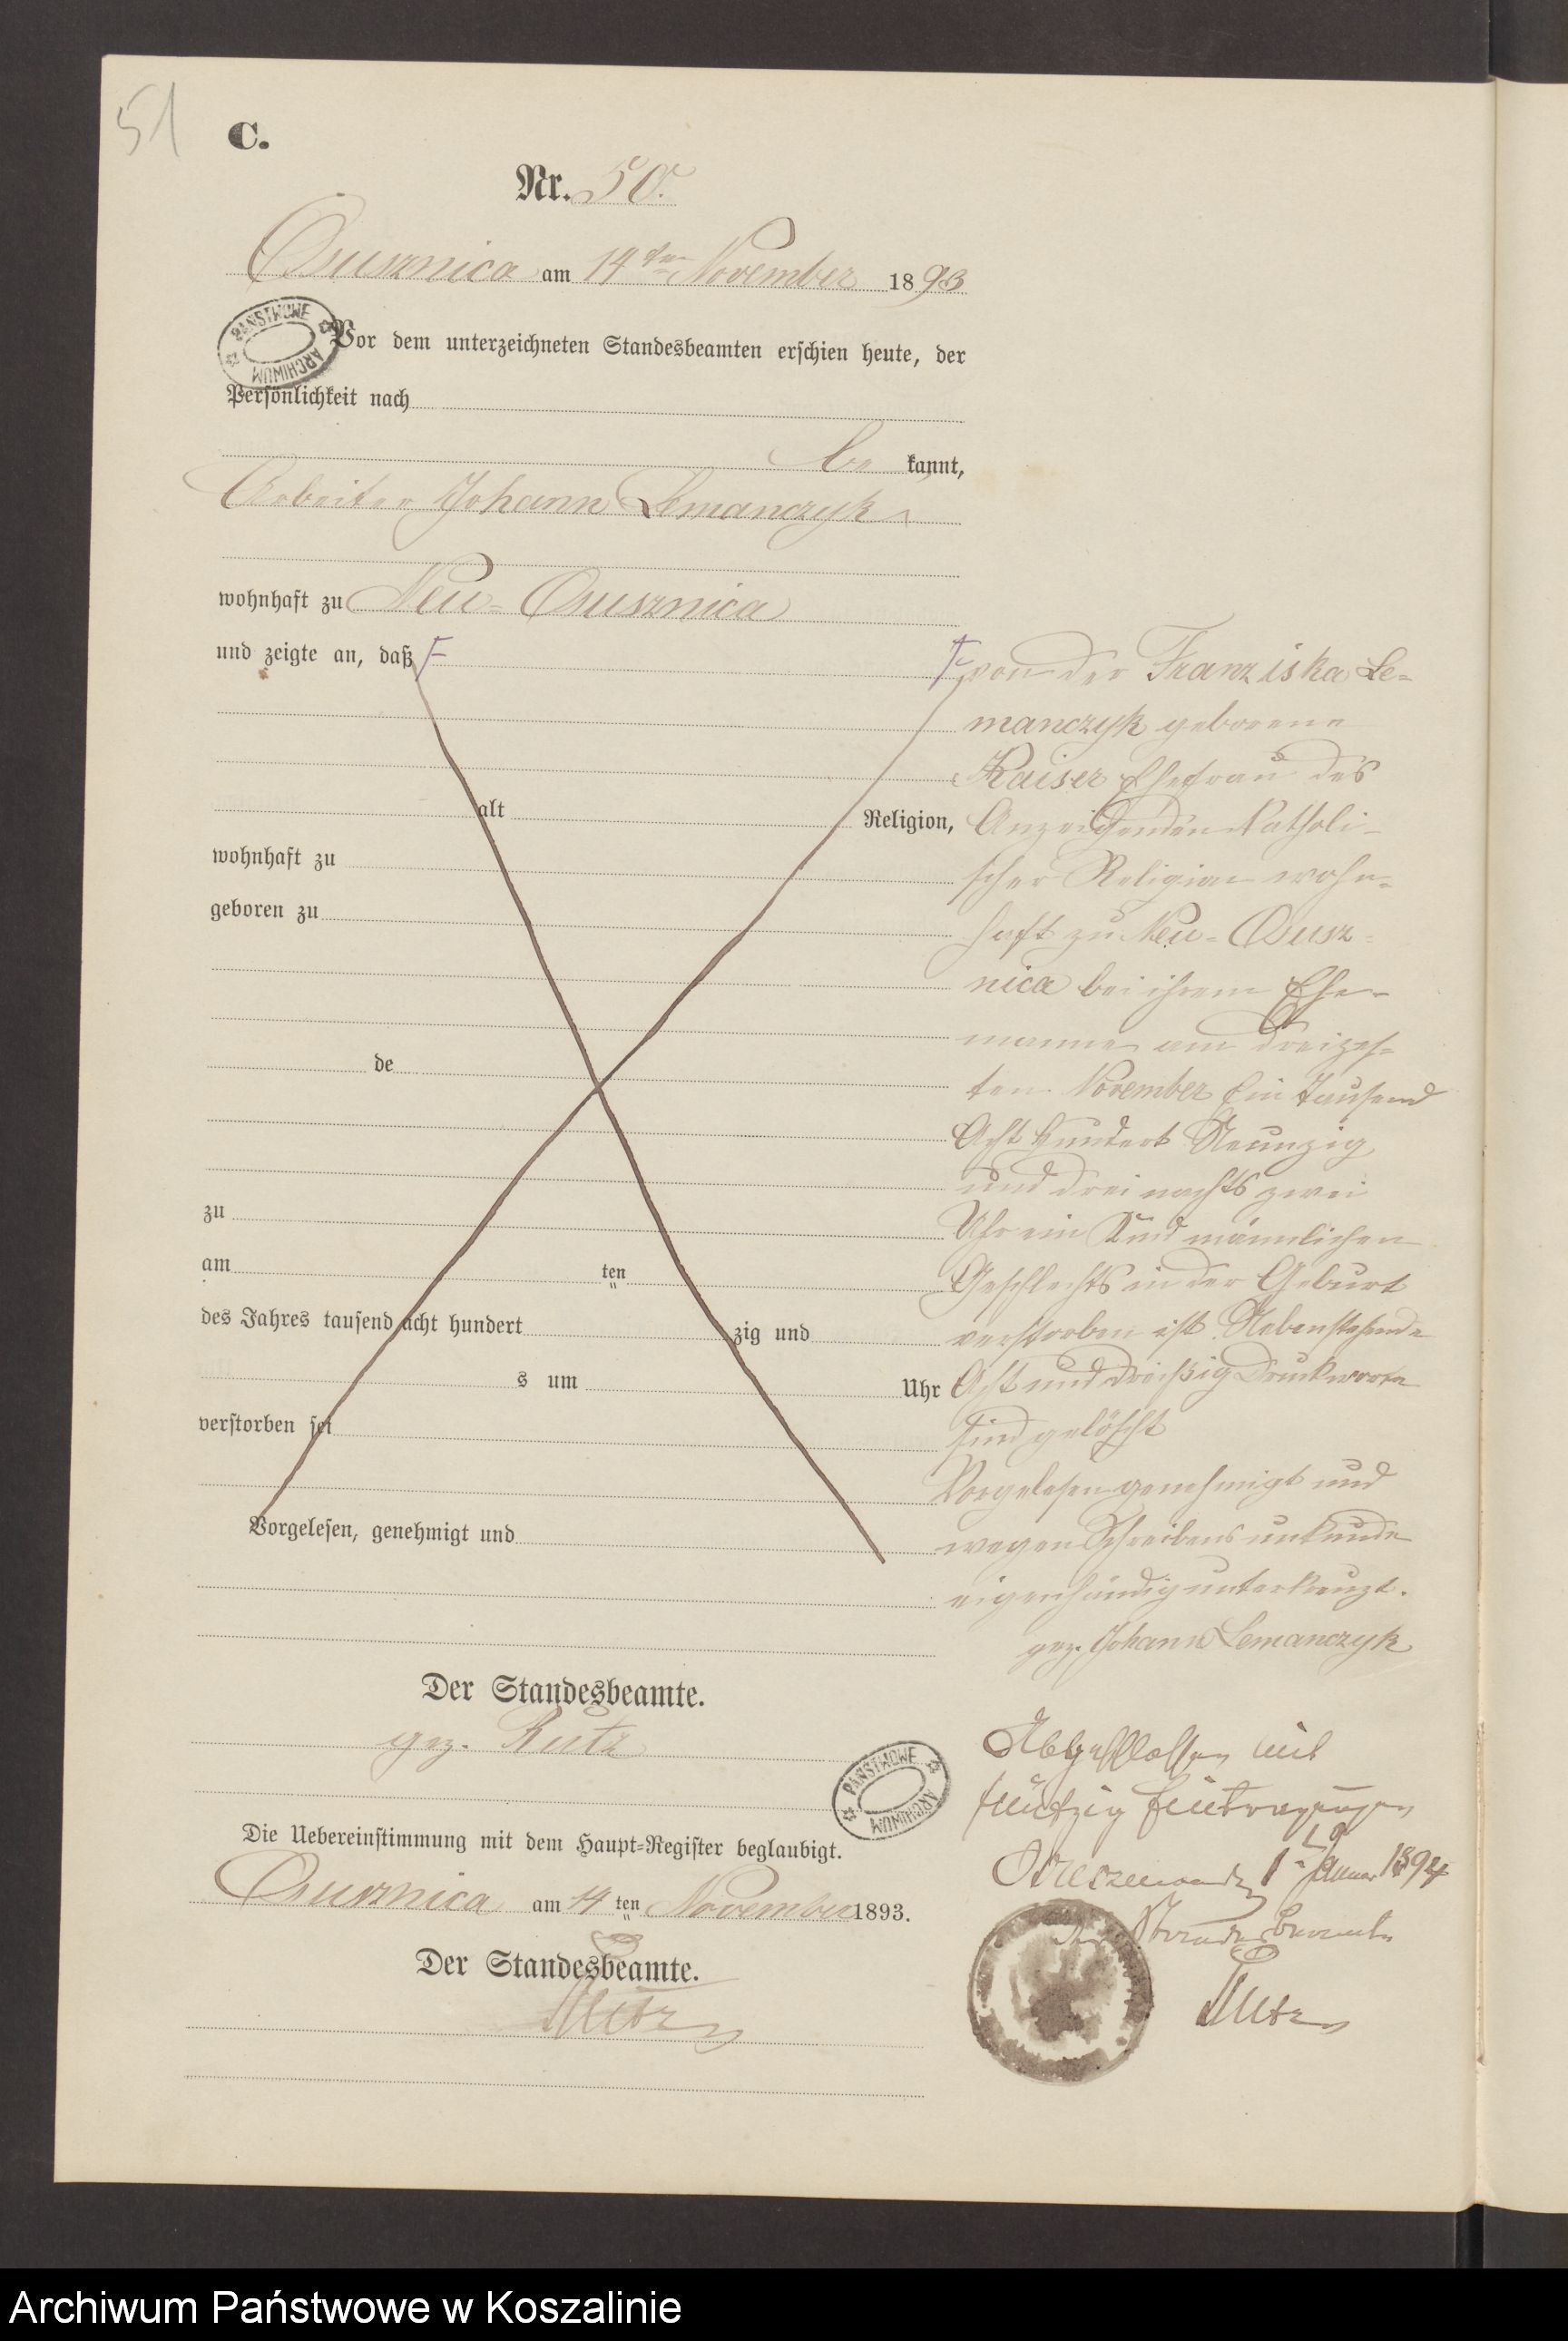 51
C.
Nr. 50.
Ossusznica am 14ten November 1893
PAŃSTWOWE ARCHIWUM
Vor dem unterzeichneten Standesbeamten erschien heute, der
Persönlichkeit nach
be kannt,
Arbeiter Johann Lemanczyk
wohnhaft zu Neu-Ossusznica
und zeigte an, daß F
alt Religion,
wohnhaft zu
geboren zu
de
zu
am ten
des Jahres tausend acht hundert zig und
s um Uhr
verstorben sei
Vorgelesen, genehmigt und
F von der Franziska Le-
manczyk geborene
Kaiser Ehefrau des
Anzeigenden katholi-
scher Religion wohn-
haft zu Neu-Ossusz-
nica bei ihrem Ehe-
manne am dreizeh-
ten November Ein tausend
Acht hundert Neunzig
und drei nachts zwei
Uhr ein Kind männlichen
Geschlechts in der Geburt
verstorben ist. Nebenstehende
Acht und dreißig Druckworte
sind gelöscht
Vorgelesen genehmigt und
wegen Schreibensunkunde
eigenhändig unterkreuzt.
gez. Johann Lemanczyk
Der Standesbeamte.
gez. Rutz
PAŃSTWOWE ARCHIWUM
Die Uebereinstimmung mit dem Haupt-Register beglaubigt.
Ossusznica am 14 ten November 1893.
Der Standesbeamte.
Rutz
Abgeschlossen mit
fünfzig Eintragungen
1 Januar 1894
Der Standesbeamte
Rutz
Archiwum Państwowe w Koszalinie